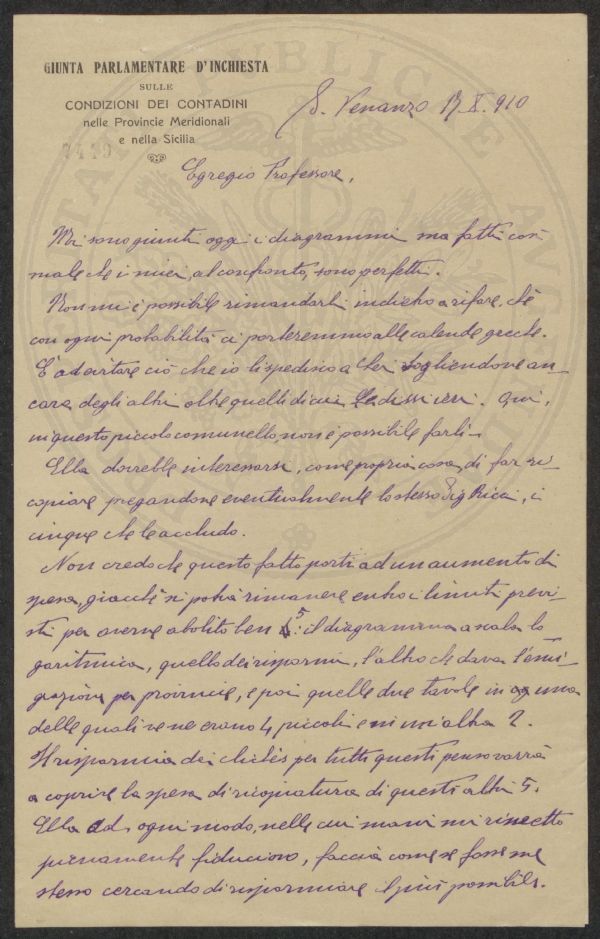 GIUNTA PARLAMENTARE D'INCHIESTA
SULLE
CONDIZIONI DEI CONTADINI
nelle Provincie Meridionali
e nella Sicilia
S. Venanzo 17 X. 910
Egregio Professore,
Mi sono giunti oggi i diagrammi ma fatti così
male che i miei, al confronto, sono perfetti.
Non mi è possibile rimandarli indietro a rifare, chè
con ogni probabilità ci porteremmo alle calende greche.
È ad evitare ciò che io li spedisco a Lei togliendone an-
cora degli altri oltre quelli di cui Le dissi ieri. Qui,
in questo piccolo comunello, non è possibile farli.
Ella dovrebbe interessarsi, come propria cosa, di far ri-
copiare pregandone eventualmente lo stesso Sig Ricci, i
cinque che le accludo.
Non credo che questo fatto porti ad un aumento di
spesa, giacchè si potrà rimanere entro i limiti previ-
sti per averne abolito ben 5: il diagramma a scala lo
garitmica, quello dei risparmi, l'altro che dava l'emi-
grazione per provincie, e poi quelle due tavole in una
delle quali ve ne erano 4 piccoli e in un'altra 2.
Il risparmio dei clichès per tutti questi penso varrà
a coprire la spesa di ricopiatura di questi altri 5.
Ella ad ogni modo, nelle cui mani mi rimetto
pienamente fiducioso, faccia come se fosse me
stesso cercando di risparmiare il più possibile.